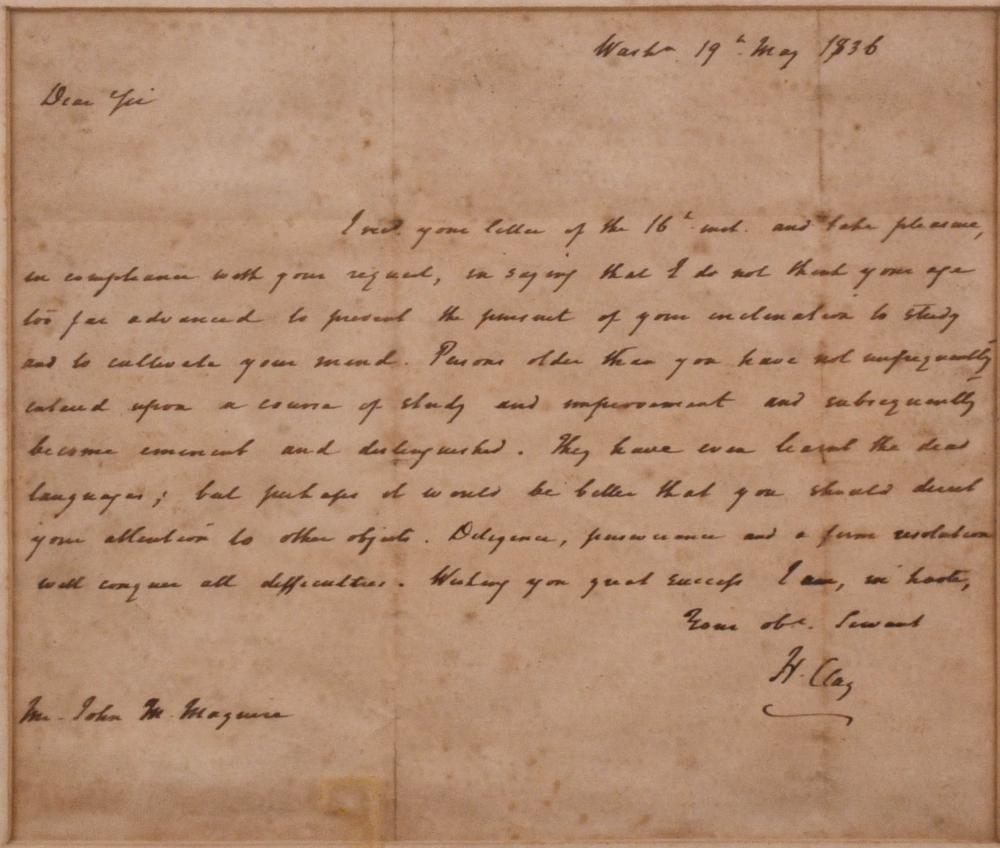 Washn. 19th May 1836
Dear Sir
I recd. your letter of the 16h. inst. and take pleasure,
in compliance with your request, in saying that I do not think your age
too far advanced to prevent the pursuit of your inclination to study
and to cultivate your mind. Persons older than you have not unfrequently
entered upon a course of study and improvement and subsequently
become eminent and distinguished. They have even learnt the dead
languages; but perhaps it would be better that you should direct
your attention to other objects. Diligence, perseverance and a firm resolution
will conquer all difficulties. Wishing you great success I am, in haste,
Your obt. Servant
H. Clay
Mr. John M. Maguire